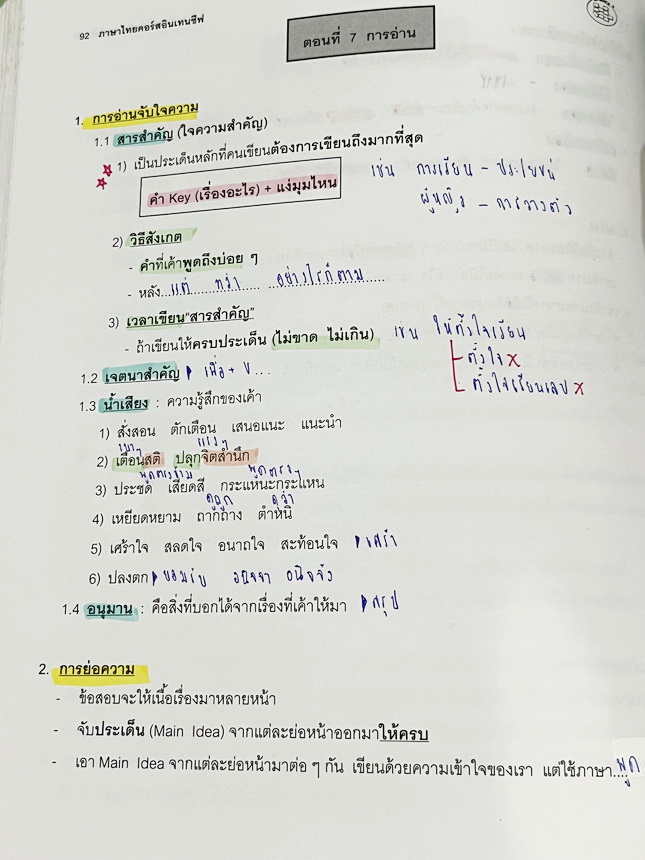 92 ภาษาไทยคอร์สอินเทนซีฟ
ตอนที่ 7 การอ่าน
1. การอ่านจับใจความ
1.1 สารสำคัญ (ใจความสำคัญ)
1) เป็นประเด็นหลักที่คนเขียนต้องการเขียนถึงมากที่สุด
คำ Key (เรื่องอะไร) + แง่มุมไหน
เช่น การเรียน - ประโยชน์
ผู้หญิง - การวางตัว
2) วิธีสังเกต
- คำที่เค้าพูดถึงบ่อย ๆ
- หลัง...แต่ ทว่า อย่างไรก็ตาม...
3) เวลาเขียน"สารสำคัญ"
- ถ้าเขียนให้ครบประเด็น (ไม่ขาด ไม่เกิน) เช่น ให้ตั้งใจเรียน
ตั้งใจ x
ตั้งใจเรียนเลข x
1.2 เจตนาสำคัญ เพื่อ + v...
1.3 น้ำเสียง : ความรู้สึกของเค้า
1) สั่งสอน ตักเตือน เสนอแนะ แนะนำ
เบาๆ แรงๆ
2) เตือนสติ ปลุกจิตสำนึก
พูดตรงข้าม พูดตรง
3) ประชด เสียดสี กระแหนะกระแหน
ดูถูก ด่า
4) เหยียดหยาม ถากถาง ตำหนิ
5) เศร้าใจ สลดใจ อนาถใจ สะท้อนใจ เศร้า
6) ปลงตก ยอมรับ อนิจจัง
1.4 อนุมาน : คือสิ่งที่บอกได้จากเรื่องที่เค้าให้มา สรุป
2. การย่อความ
- ข้อสอบจะให้เนื้อเรื่องมาหลายหน้า
- จับประเด็น (Main Idea) จากแต่ละย่อหน้าออกมาให้ครบ
- เอา Main Idea จากแต่ละย่อหน้ามาต่อ ๆ กัน เขียนด้วยความเข้าใจของเรา แต่ใช้ภาษา....